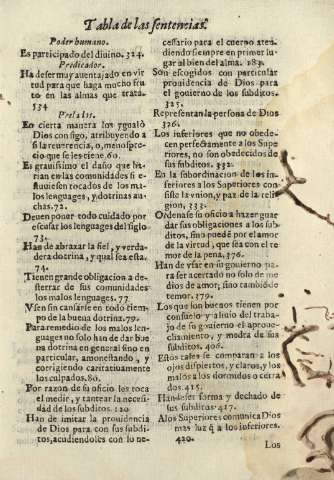 Tabla de las sentencias.
Poder humano.
Es participado del diuino. 324.
Predicador.
Ha de ser muy auentajado en vir
tud para que haga mucho fru
to en las almas que trata.
534
Prelados.
En cierta manera los ygualò
Dios consigo, atribuyendo a
si la reuerencia, o, menospre-
cio que se les tiene. 60.
Es grauissimo el daño que ha-
rian en las comunidades si e-
stuuiessen tocados de los ma-
los lenguages, y dotrinas au-
chas. 72.
Deuen poner todo cuidado por
escusar los lenguages del siglo
73.
Han de abrazar la fiel, y verda-
dera dotrina, y qual sea esta.
74.
Tienen grande obligacion a de-
sterrar de sus comunidades
los malos lenguages. 77
Vsen sin cansarse en todo tiem-
po de la buena dotrina. 79.
Para remedio de los malos len-
guages no solo han de dar bue
na dotrina en general sino en
particular, amonestando, y
corrigiendo caritatiuamente
los culpados. 80.
Por razon de su oficio les toca
el medir, y tantear la necesi-
dad de los subditos. 120
Han de imitar la prouidencia
de Dios para con sus subdi-
tos, acudiendoles con lo ne-
cessario para el cuerpo aten-
diendo siempre en primer lu-
gar al bien del alma. 183.
Son escogidos con particular
prouidencia de Dios para
el gouierno de los subditos.
325.
Representan la persona de Dios
326.
Los inferiores que no obede-
cen perfectamente a los Supe
riores, no son obedecidos de
sus subditos. 332.
En la subordinacion de los in-
feriores a los Superiores con-
siste la vnion, y paz de la reli-
gion. 333.
Ordenase su oficio a hazer guar
dar sus obligaciones a los sub-
ditos, sino puedē por el amor
de la virtud, que sea con el te-
mor de la pena, 376.
Han de vsar en su gouierno pa-
ra ser acertado no solo de me
dios de amor; sino tambiē de
temor. 379.
Los que son buenos tienen por
consuelo y aliuio del trabajo
de su gouierno el aproue-
chamiento, y medra de sus
subditos. 406.
Estos tales se comparan a los
ojos dispiertos, y claros, y los
malos a los dormidos o cerra
dos. 415.
Han de ser forma y dechado de
sus subditos. 417.
A los Superiores comunica Dios
mas luz q̄ a los inferiores.
420.
Los